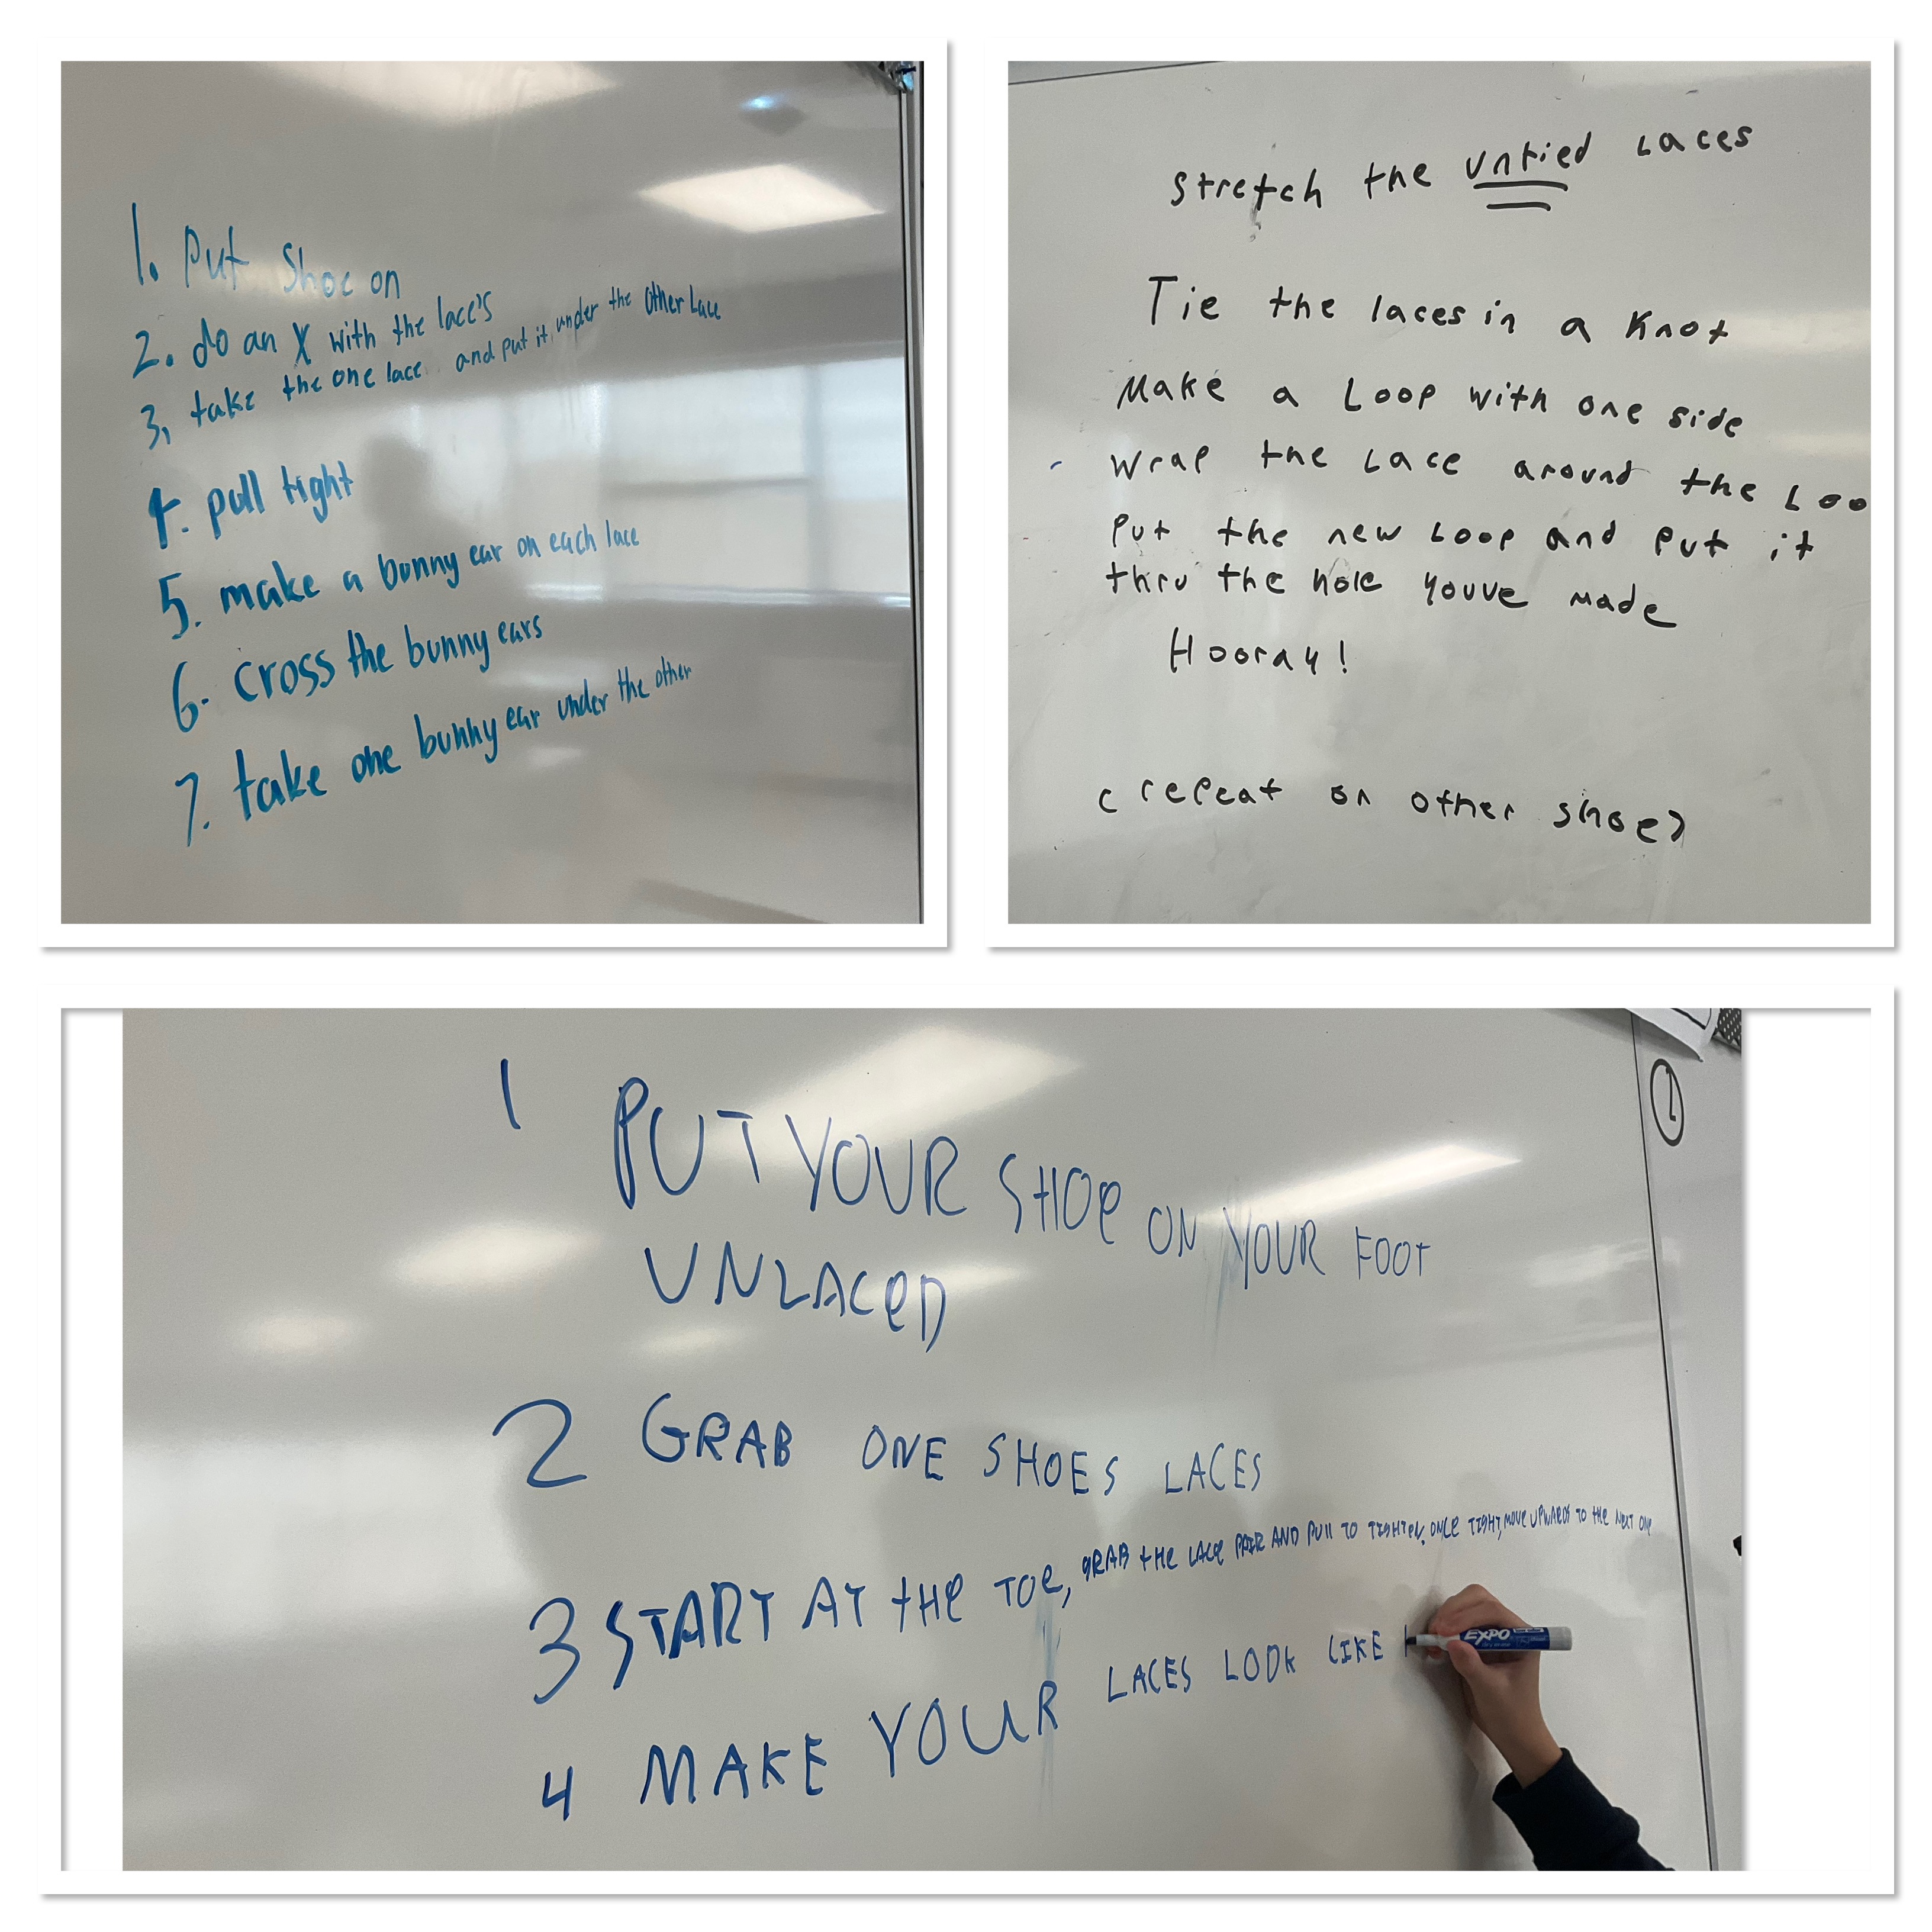 1. Put Shoe on
2. do an X with the lace's
3. take the one lace and put it under the other Lace
4. pull tight
5. make a bunny ear on each lace
6. cross the bunny ears
7. take one bunny ear under the other
Stretch the untied laces
Tie the laces in a Knot
Make a Loop with one side
Wrap the Lace around the Loo
Put the new Loop and put it
thru the hole youve made
Hooray!
(repeat on other shoe)
1 PUT YOUR SHOE ON YOUR FOOT
UNLACED
2 GRAB ONE SHOES LACES
3 START AT tHE TOE, GRAB tHE LACE PAIR AND PUll TO TIGHTEN, ONCE TIGHT, MOVE UPWARDS TO the NEXT ONE
4 MAKE YOUR LACES LOOK LIKE
EXPO
2